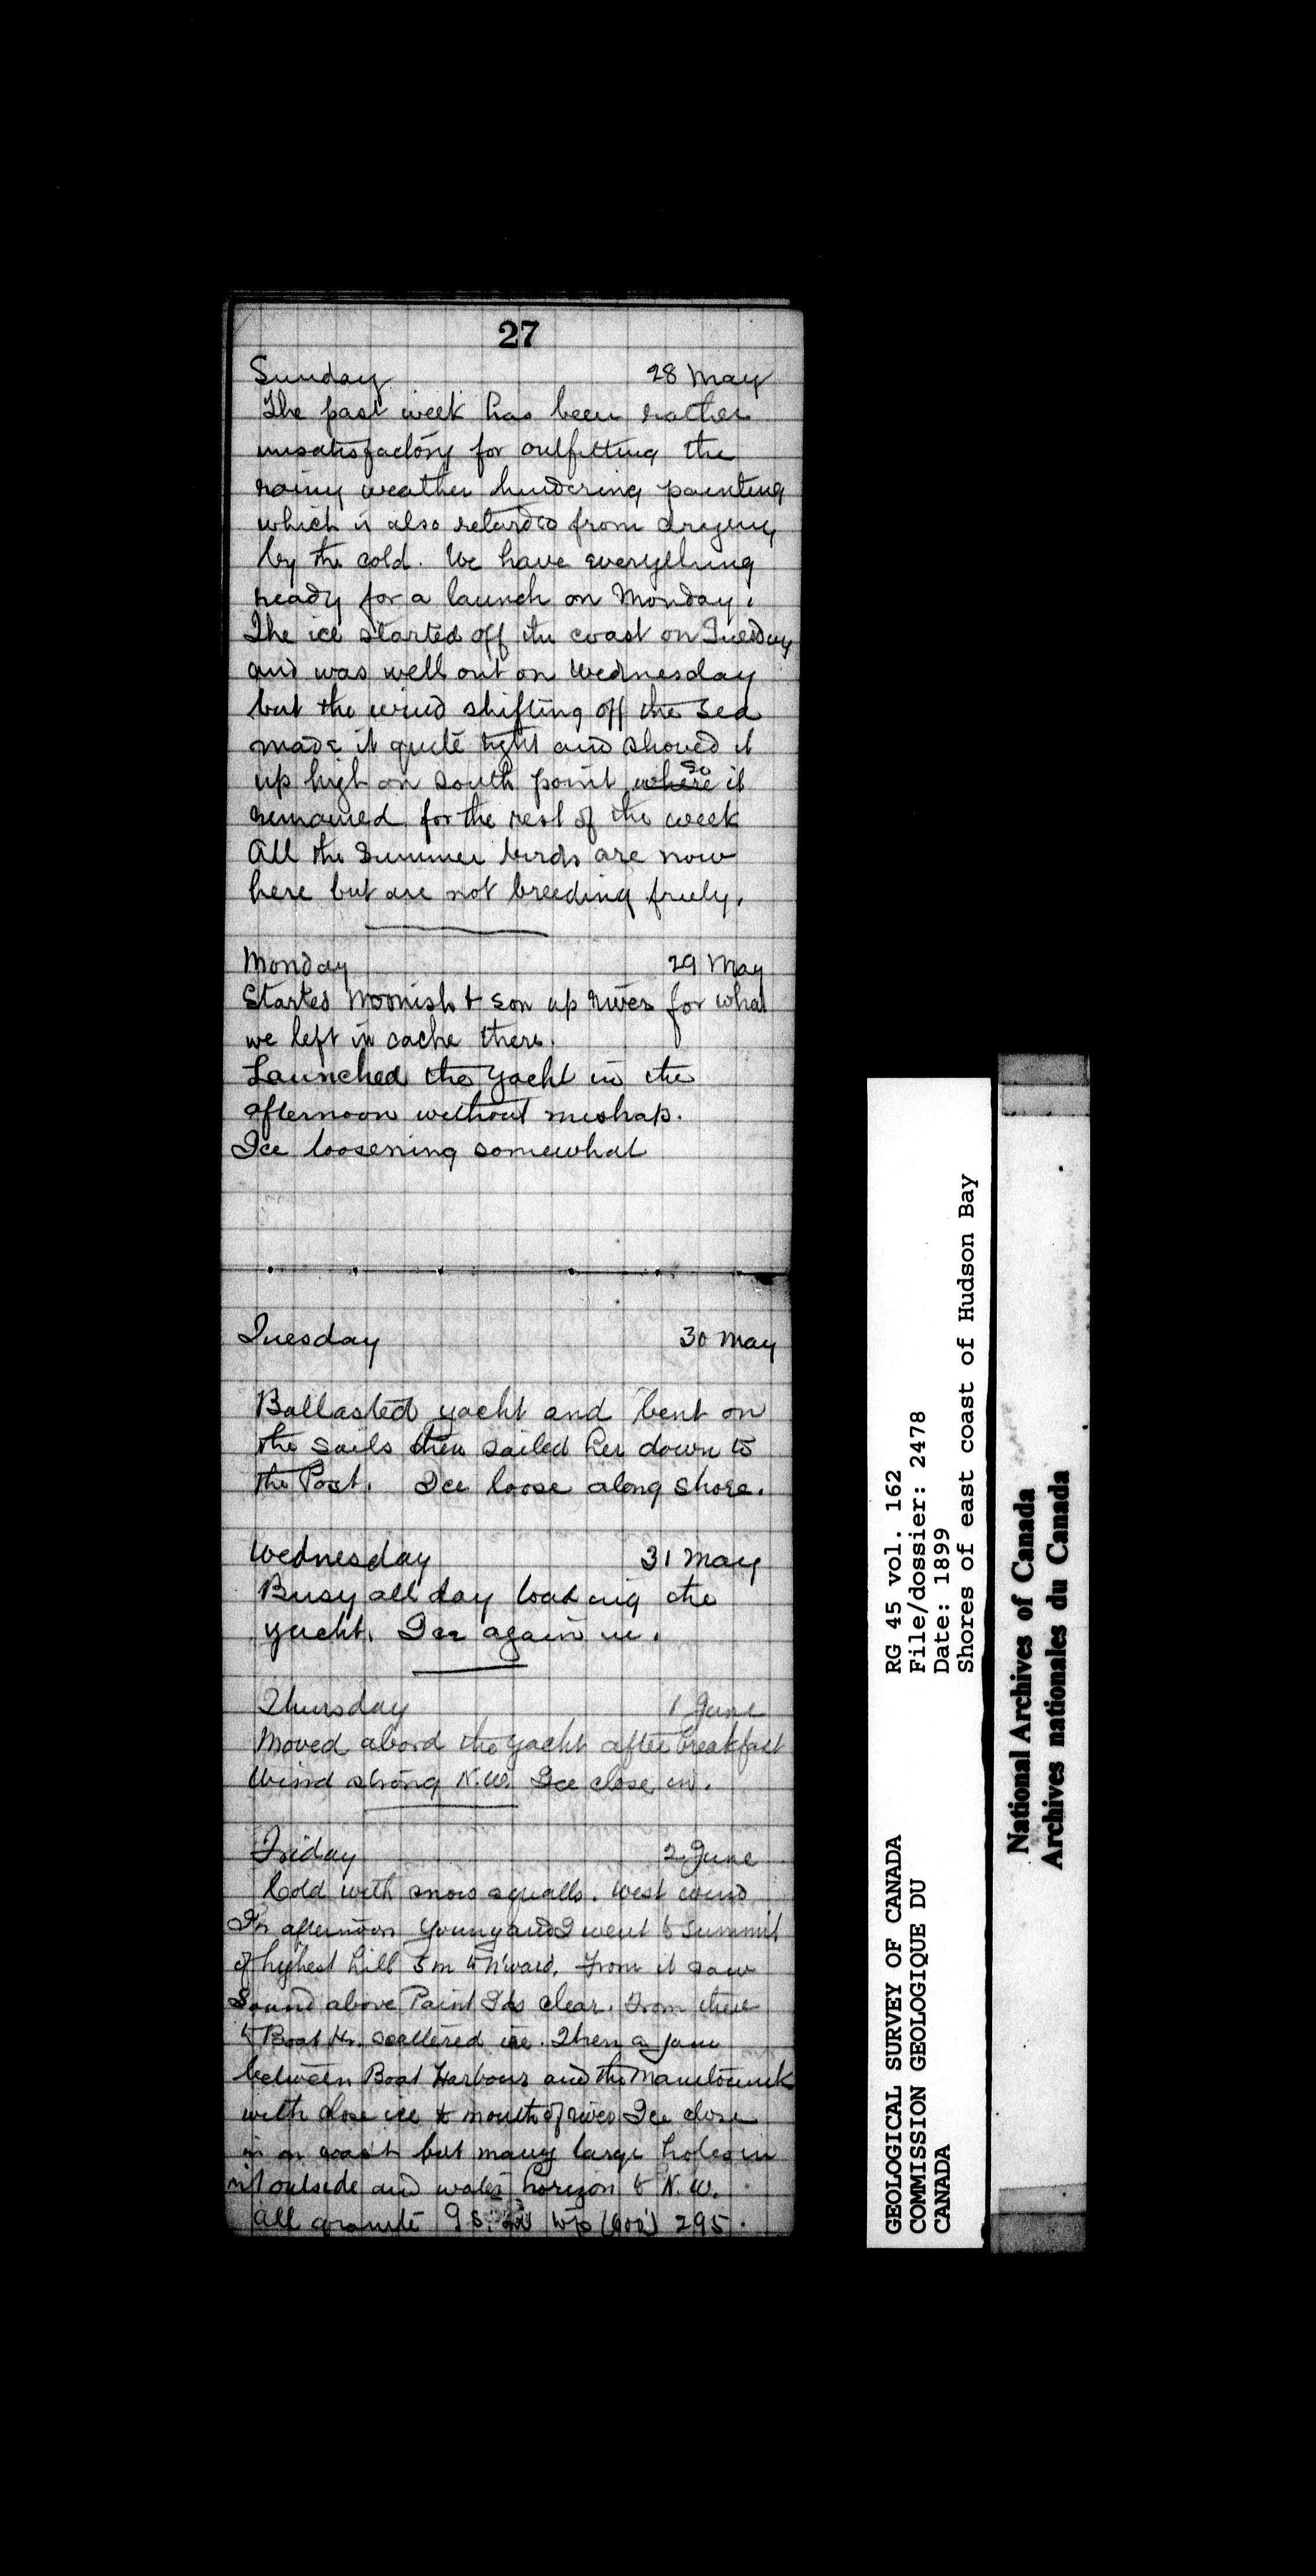 27
Sunday 28 May
The past week has been rather
unsatisfactory for outfitting the
rainy weather hindering painting
which is also retarded from drying
by the cold. We have everything
ready for a launch on Monday.
The ice started off the coast on Tuesday
and was well out on Wednesday
but the wind shifting off the sea
made it quite tight and shoved it
up high on south point where so it
remained for the rest of the week
All the summer birds are now
here but are not breeding freely.
Monday 29 May
Started Moonish & son up river for what
we left in cache there.
Launched the yacht in the
afternoon without mishap.
Ice loosening somewhat
Tuesday 30 May
Ballasted yacht and bent on
the sails then sailed her down to
the Post. Ice loose along shore.
Wednesday 31 May
Busy all day loading the
yacht. Ice again in.
Thursday 1 June
Moved abord the yacht after breakfast
Wind strong N.W. Ice close in.
Friday 2 June
Cold with snow squalls. West wind
In afternoon Young and I went to summit
of highest hill 5 m to N'ward. From it saw
Sound above Paint Ids clear. From there
to Boat Hr. scattered ice. Then a jam
between Boat Harbour and the Manitounuk
with close ice to mouth of river Ice close
in on coast but many large holes in
it outside and water horizon to N.W.
All granite gs. 295.
RG 45 vol. 162
File/dossier: 2478
Date: 1899
Shores of east coast of Hudson Bay
GEOLOGICAL SURVEY OF CANADA
COMMISSION GEOLOGIQUE DU
CANADA
National Archives of Canada
Archives nationales du Canada